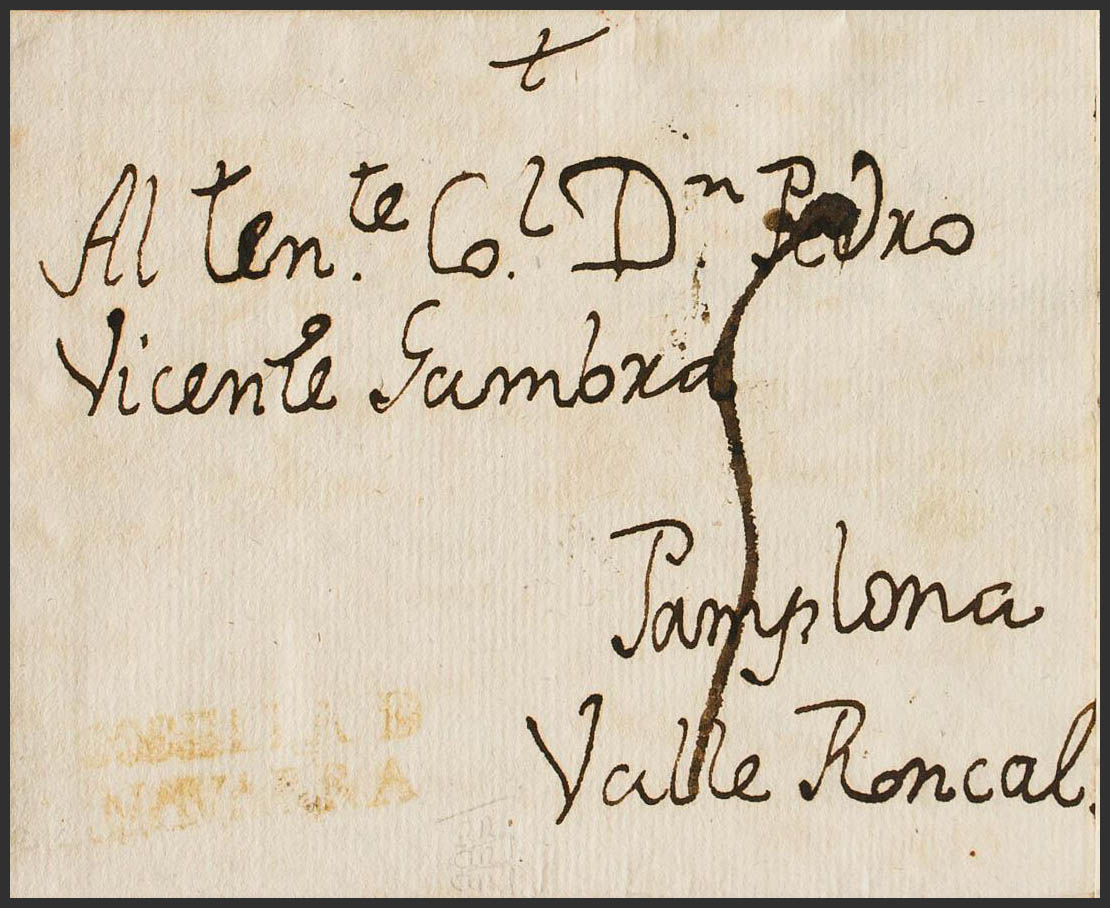 †
Al Ten.te Co.l Dn. Pedro
Vicente Gambra
Pamplona
Valle Roncal.